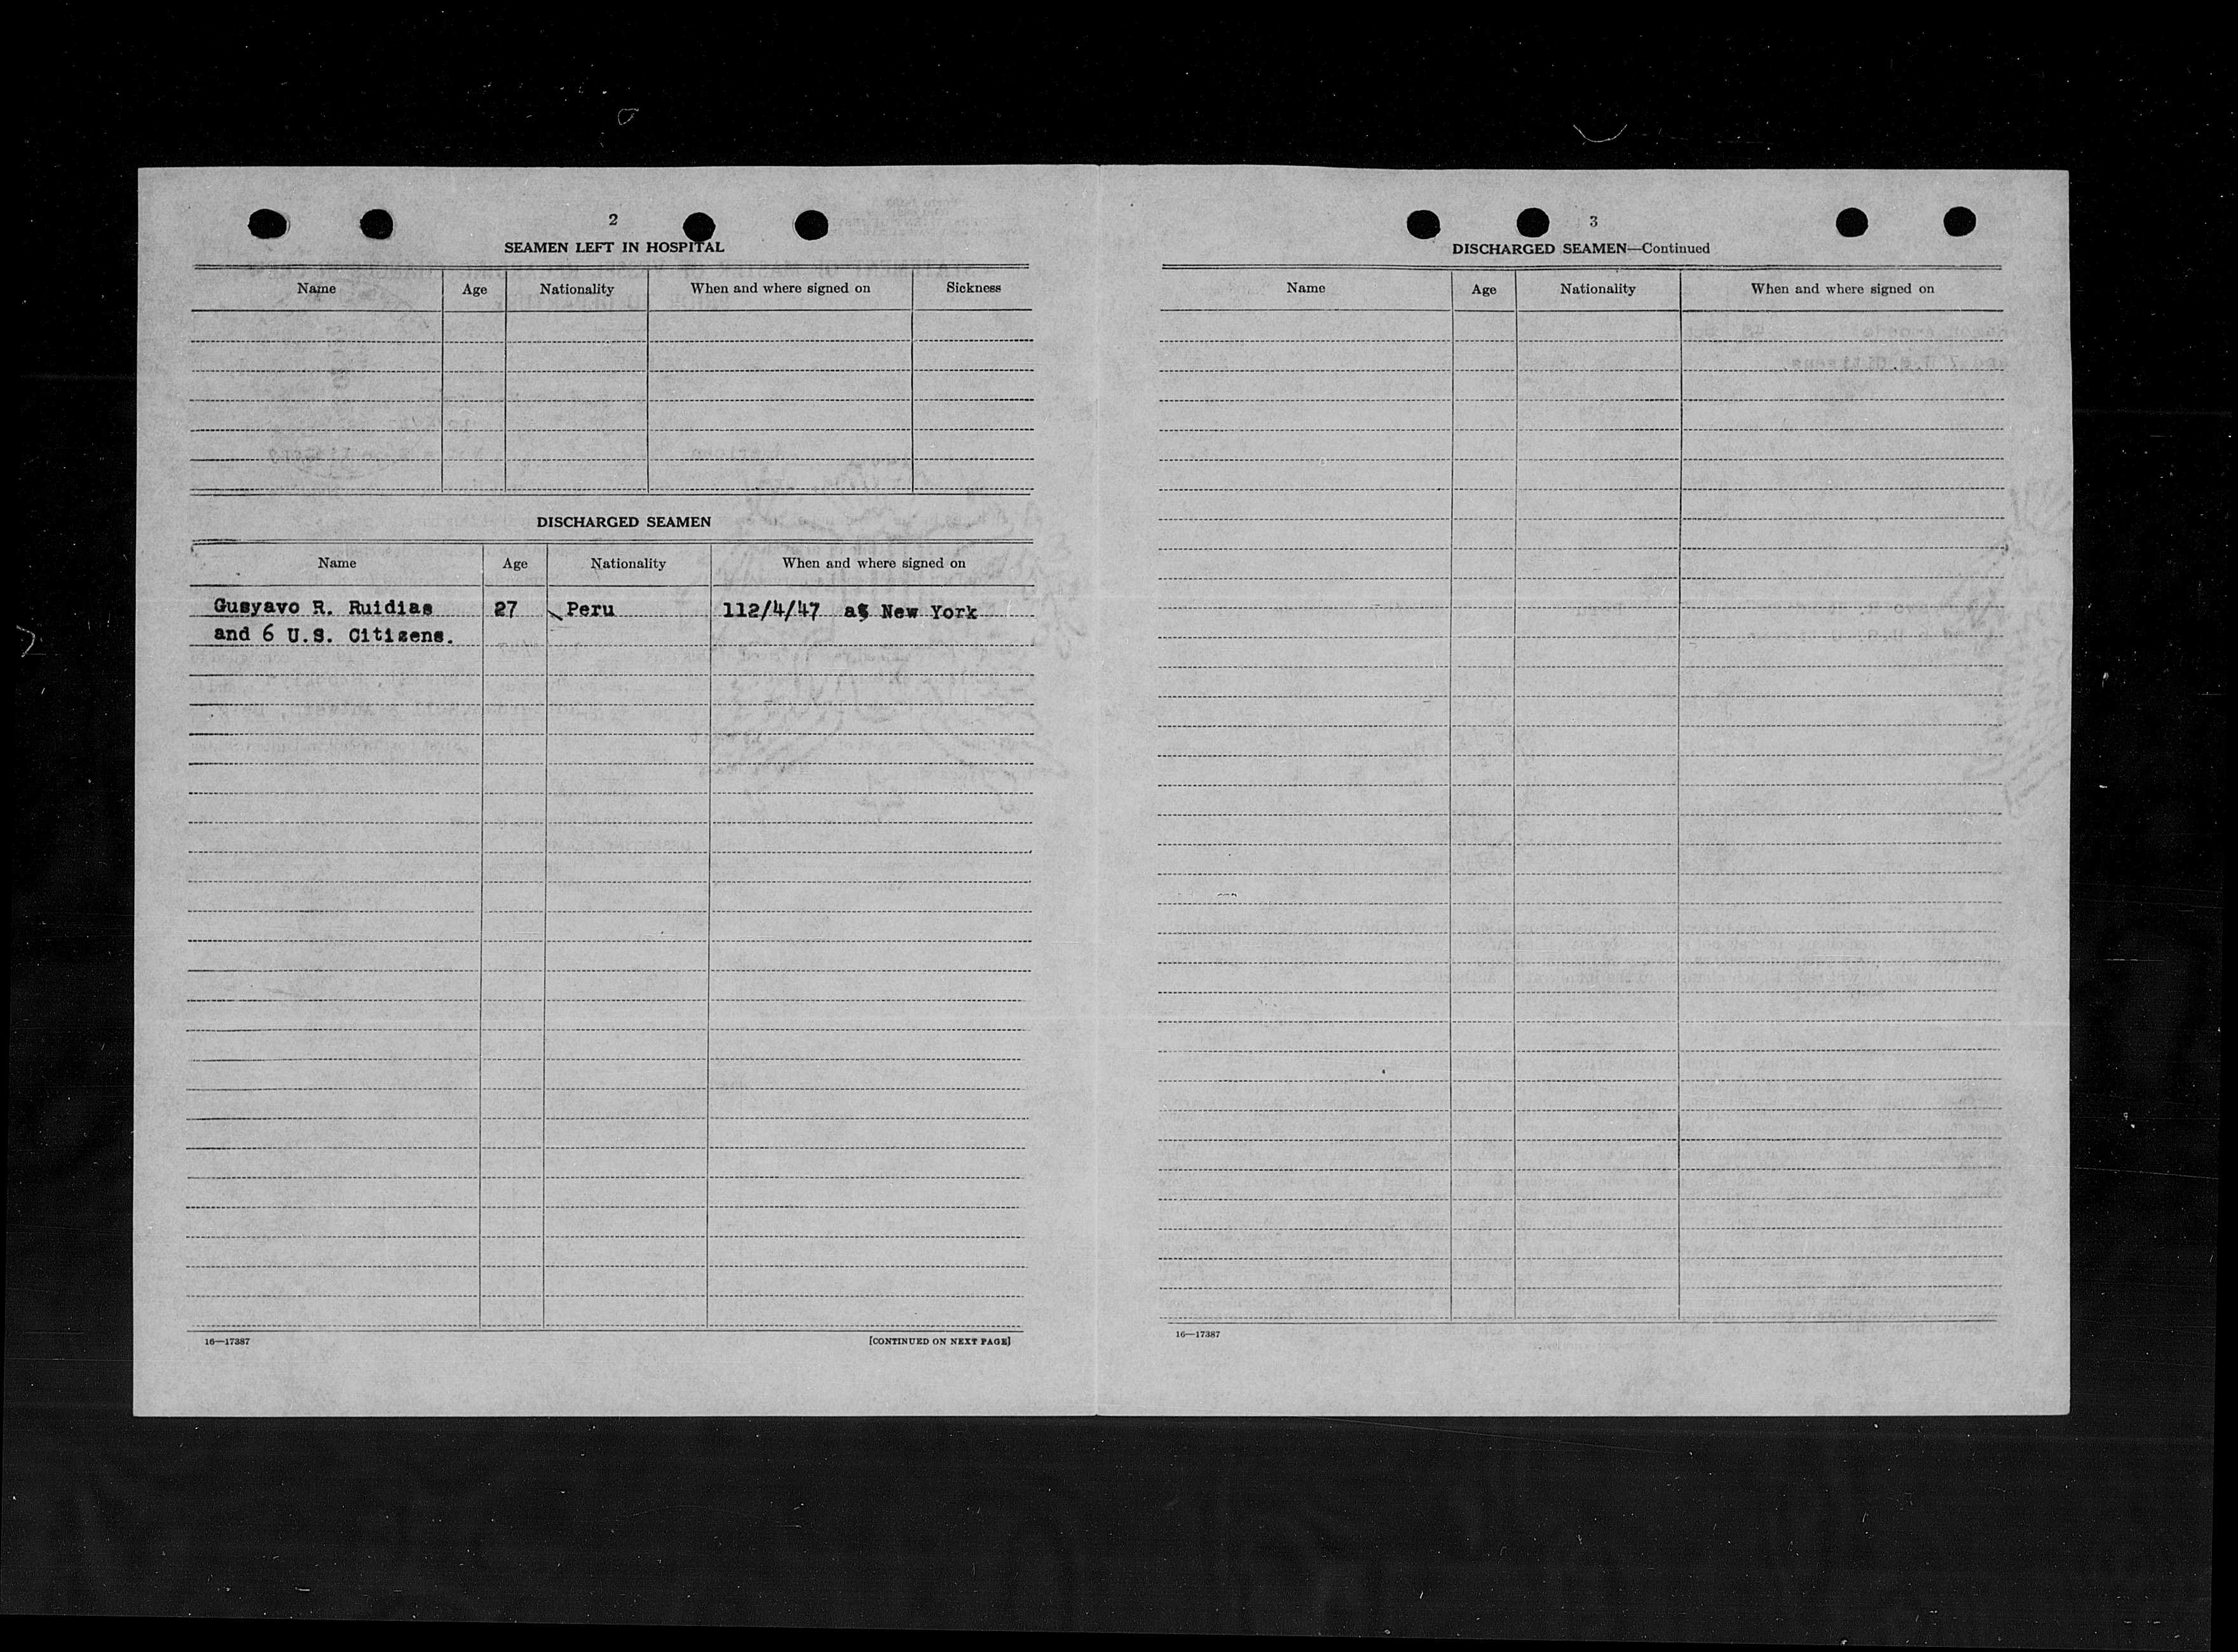 2
SEAMEN LEFT IN HOSPITAL
Name Age Nationality When and where signed on Sickness
DISCHARGED SEAMEN
Name Age Nationality When and where signed on
Gusyavo R. Ruidias 27 Peru 112/4/47 at New York
and 6 U.S. Citizens.
16—17387 [CONTINUED ON NEXT PAGE]
3
DISCHARGED SEAMEN—Continued
Name Age Nationality When and where signed on
16—17387